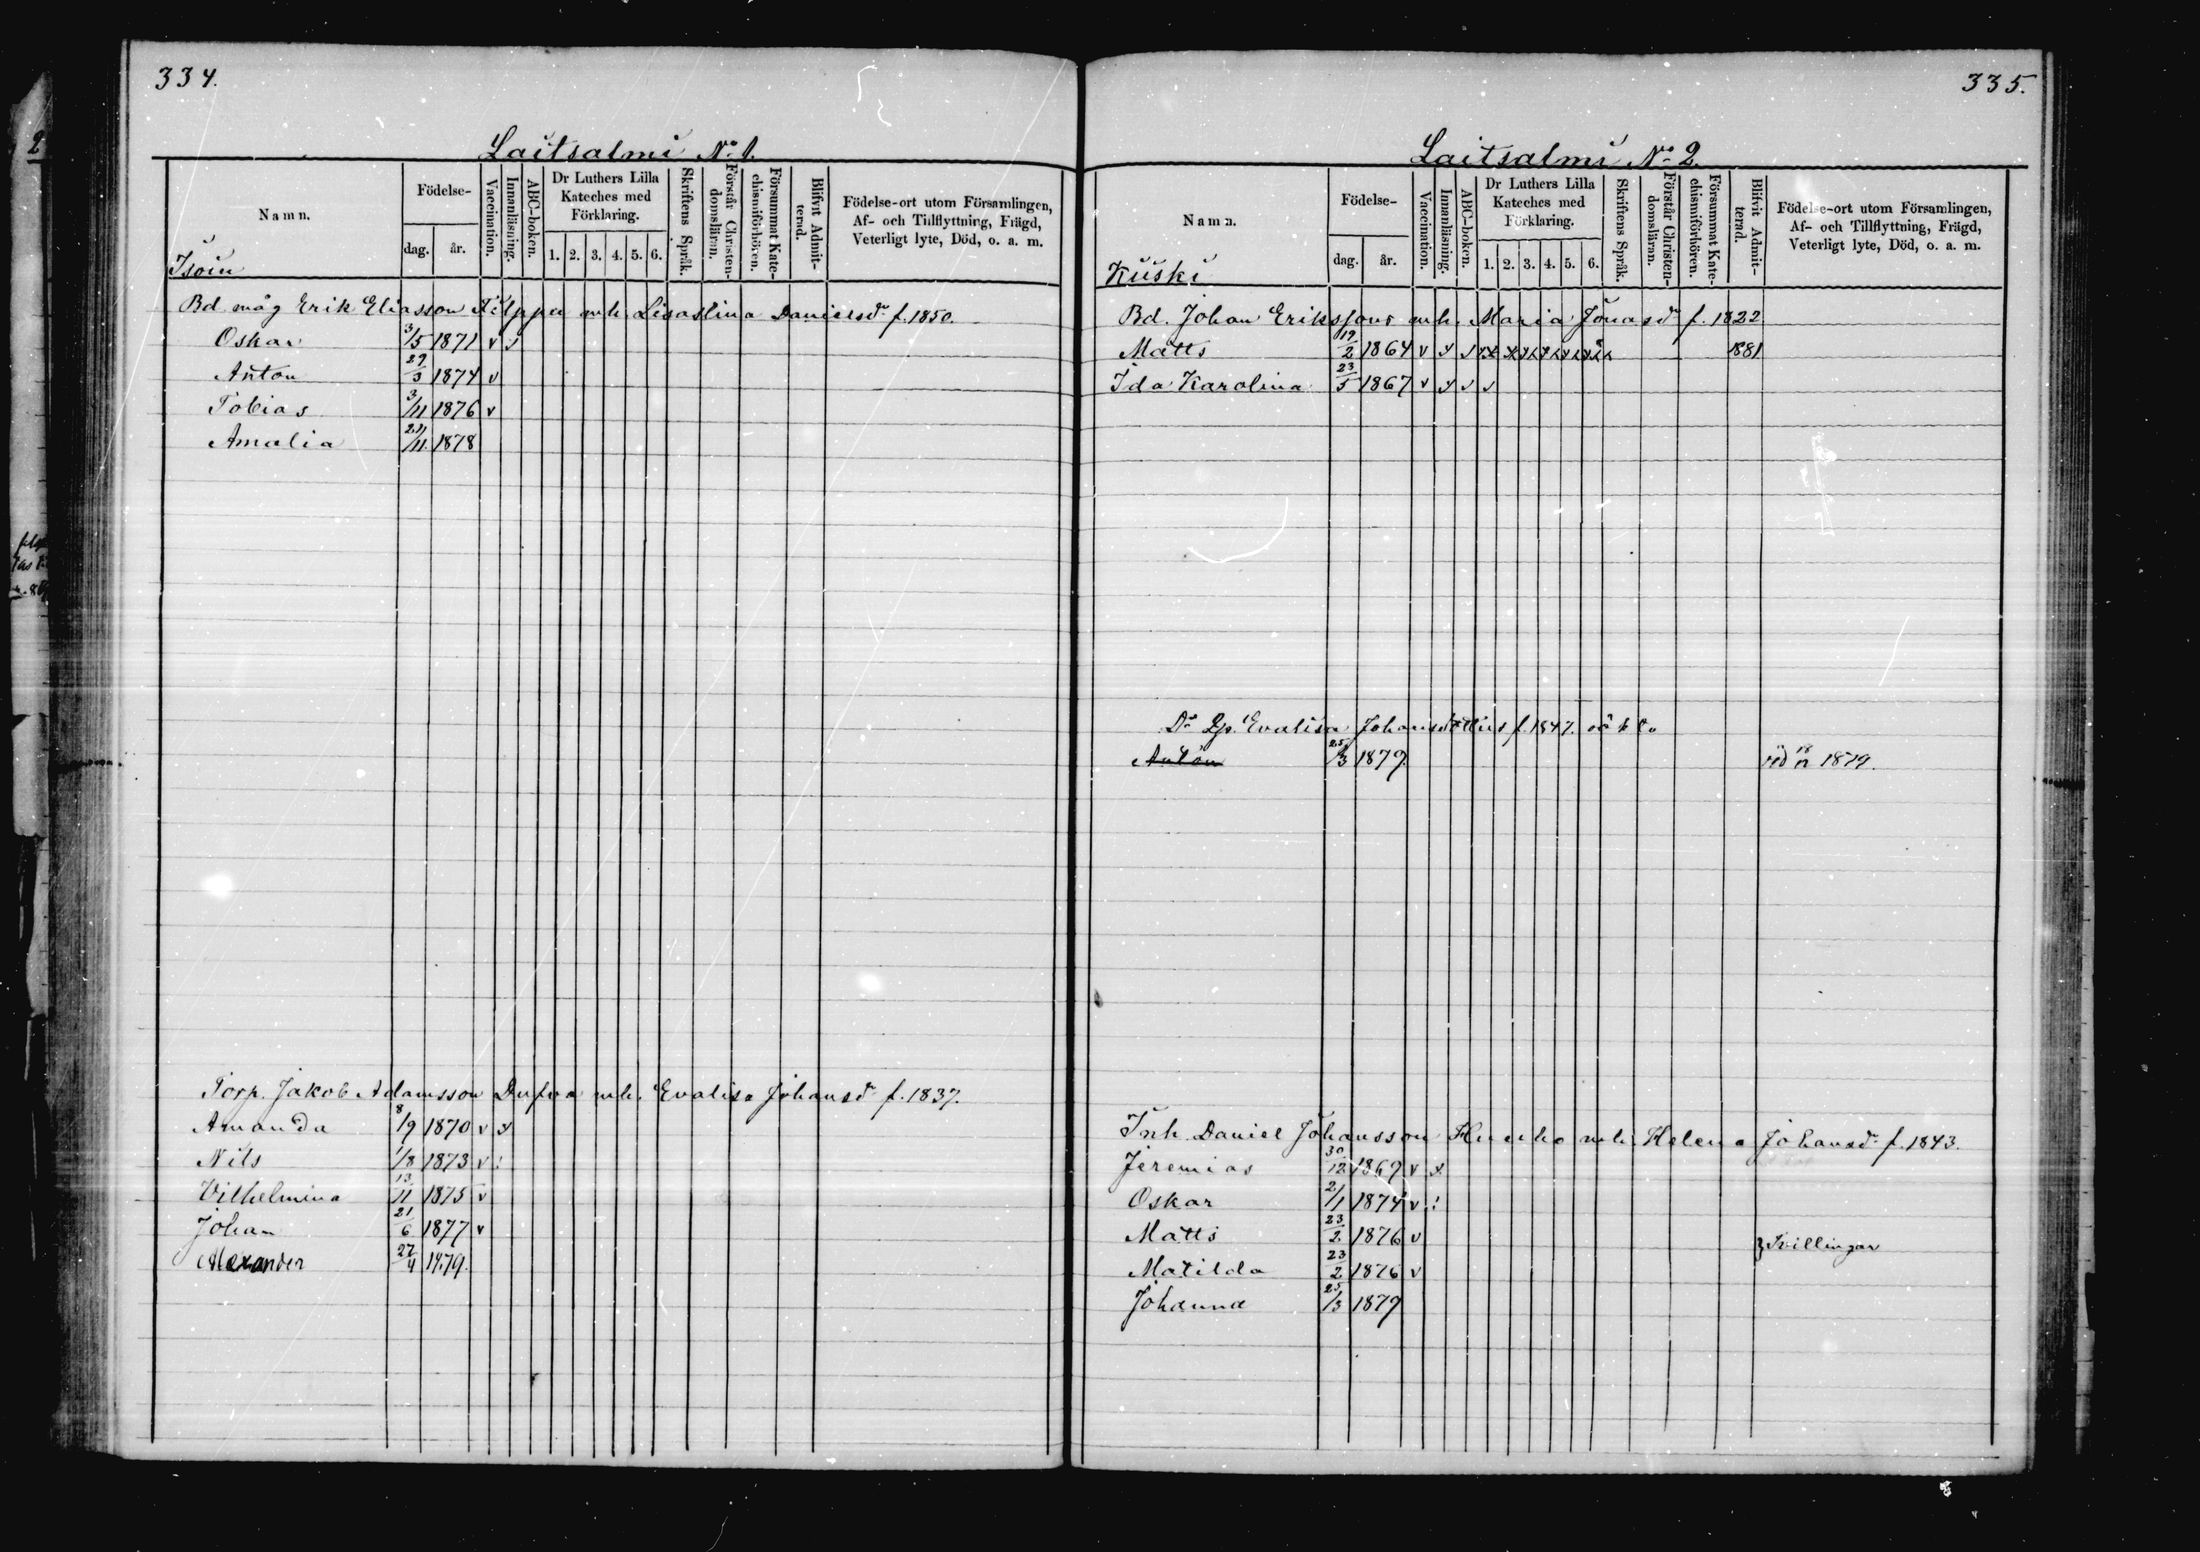 334.
Laitsalmi No 1.
Namn.
Födelse-
dag.
år.
Vaccination.
Innanläsning.
ABC-boken.
Dr Luthers Lilla
Kateches med
Förklaring.
1. 2. 3. 4. 5. 6.
Skriftens Språk.
Förstår Christen-
domsläran.
Försummat Kate-
chismiförhören.
Blifvit Admit-
terad.
Födelse-ort utom Församlingen,
Af- och Tillflyttning, Frägd,
Veterligt lyte, Död, o. a. m.
Isoin
Bd. måg Erik Eliasson Filppu mh. Lisastina Danielsdr f. 1850.
Oskar 3/5 1871 v
Anton 29/3 1874 v
Tobias 3/11 1876 v
Amalia 21/11 1878
Torp. Jakob Adamsson Dufva mh. Evalisa Johansdr f. 1837.
Amanda 8/9 1870 v x
Nils 1/8 1873 v :
Vilhelmina 13/11 1875 v
Johan 21/6 1877 v
Alexander 27/4 1879.
335.
Laitsalmi No 2.
Namn.
Födelse-
dag.
år.
Vaccination.
Innanläsning.
ABC-boken.
Dr Luthers Lilla
Kateches med
Förklaring.
1. 2. 3. 4. 5. 6.
Skriftens Språk.
Förstår Christen-
domsläran.
Försummat Kate-
chismiförhören.
Blifvit Admit-
terad.
Födelse-ort utom Församlingen,
Af- och Tillflyttning, Frägd,
Veterligt lyte, Död, o. a. m.
Kuski
Bd. Johan Eriksson mh. Maria Jonasdr f. 1822
Matts 19/2 1864 v 1881
Ida Karolina 23/5 1867 v
Dr Evalisa Johansdotters f. 1847.
Anton 25/3 1879. död 18/12 1879.
Inh. Daniel Johansson mh. Helena Johansdr f. 1843.
Jeremias 30/12 1869 v x
Oskar 2/1 1874 v :
Matts 23/2 1876 v
} Tvillingar
Matilda 23/2 1876 v
Johanna 25/3 1879